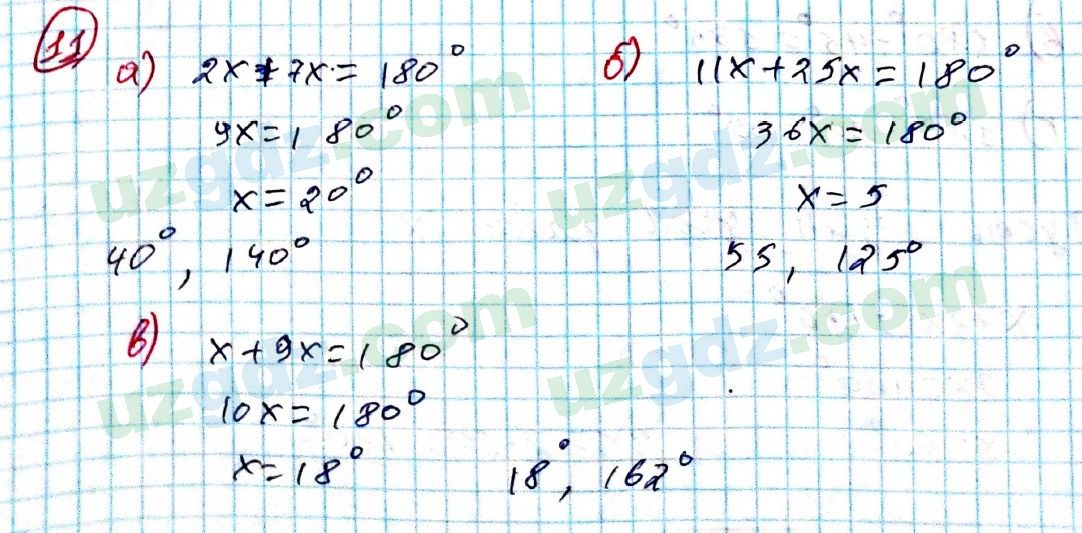 11
а) 2x + 7x = 180°
9x = 180°
x = 20°
40°, 140°
б) 11x + 25x = 180°
36x = 180°
x = 5
55, 125°
в) x + 9x = 180°
10x = 180°
x = 18°
18°, 162°
uzgdz.com
uzgdz.com
uzgdz.com
uzgdz.com